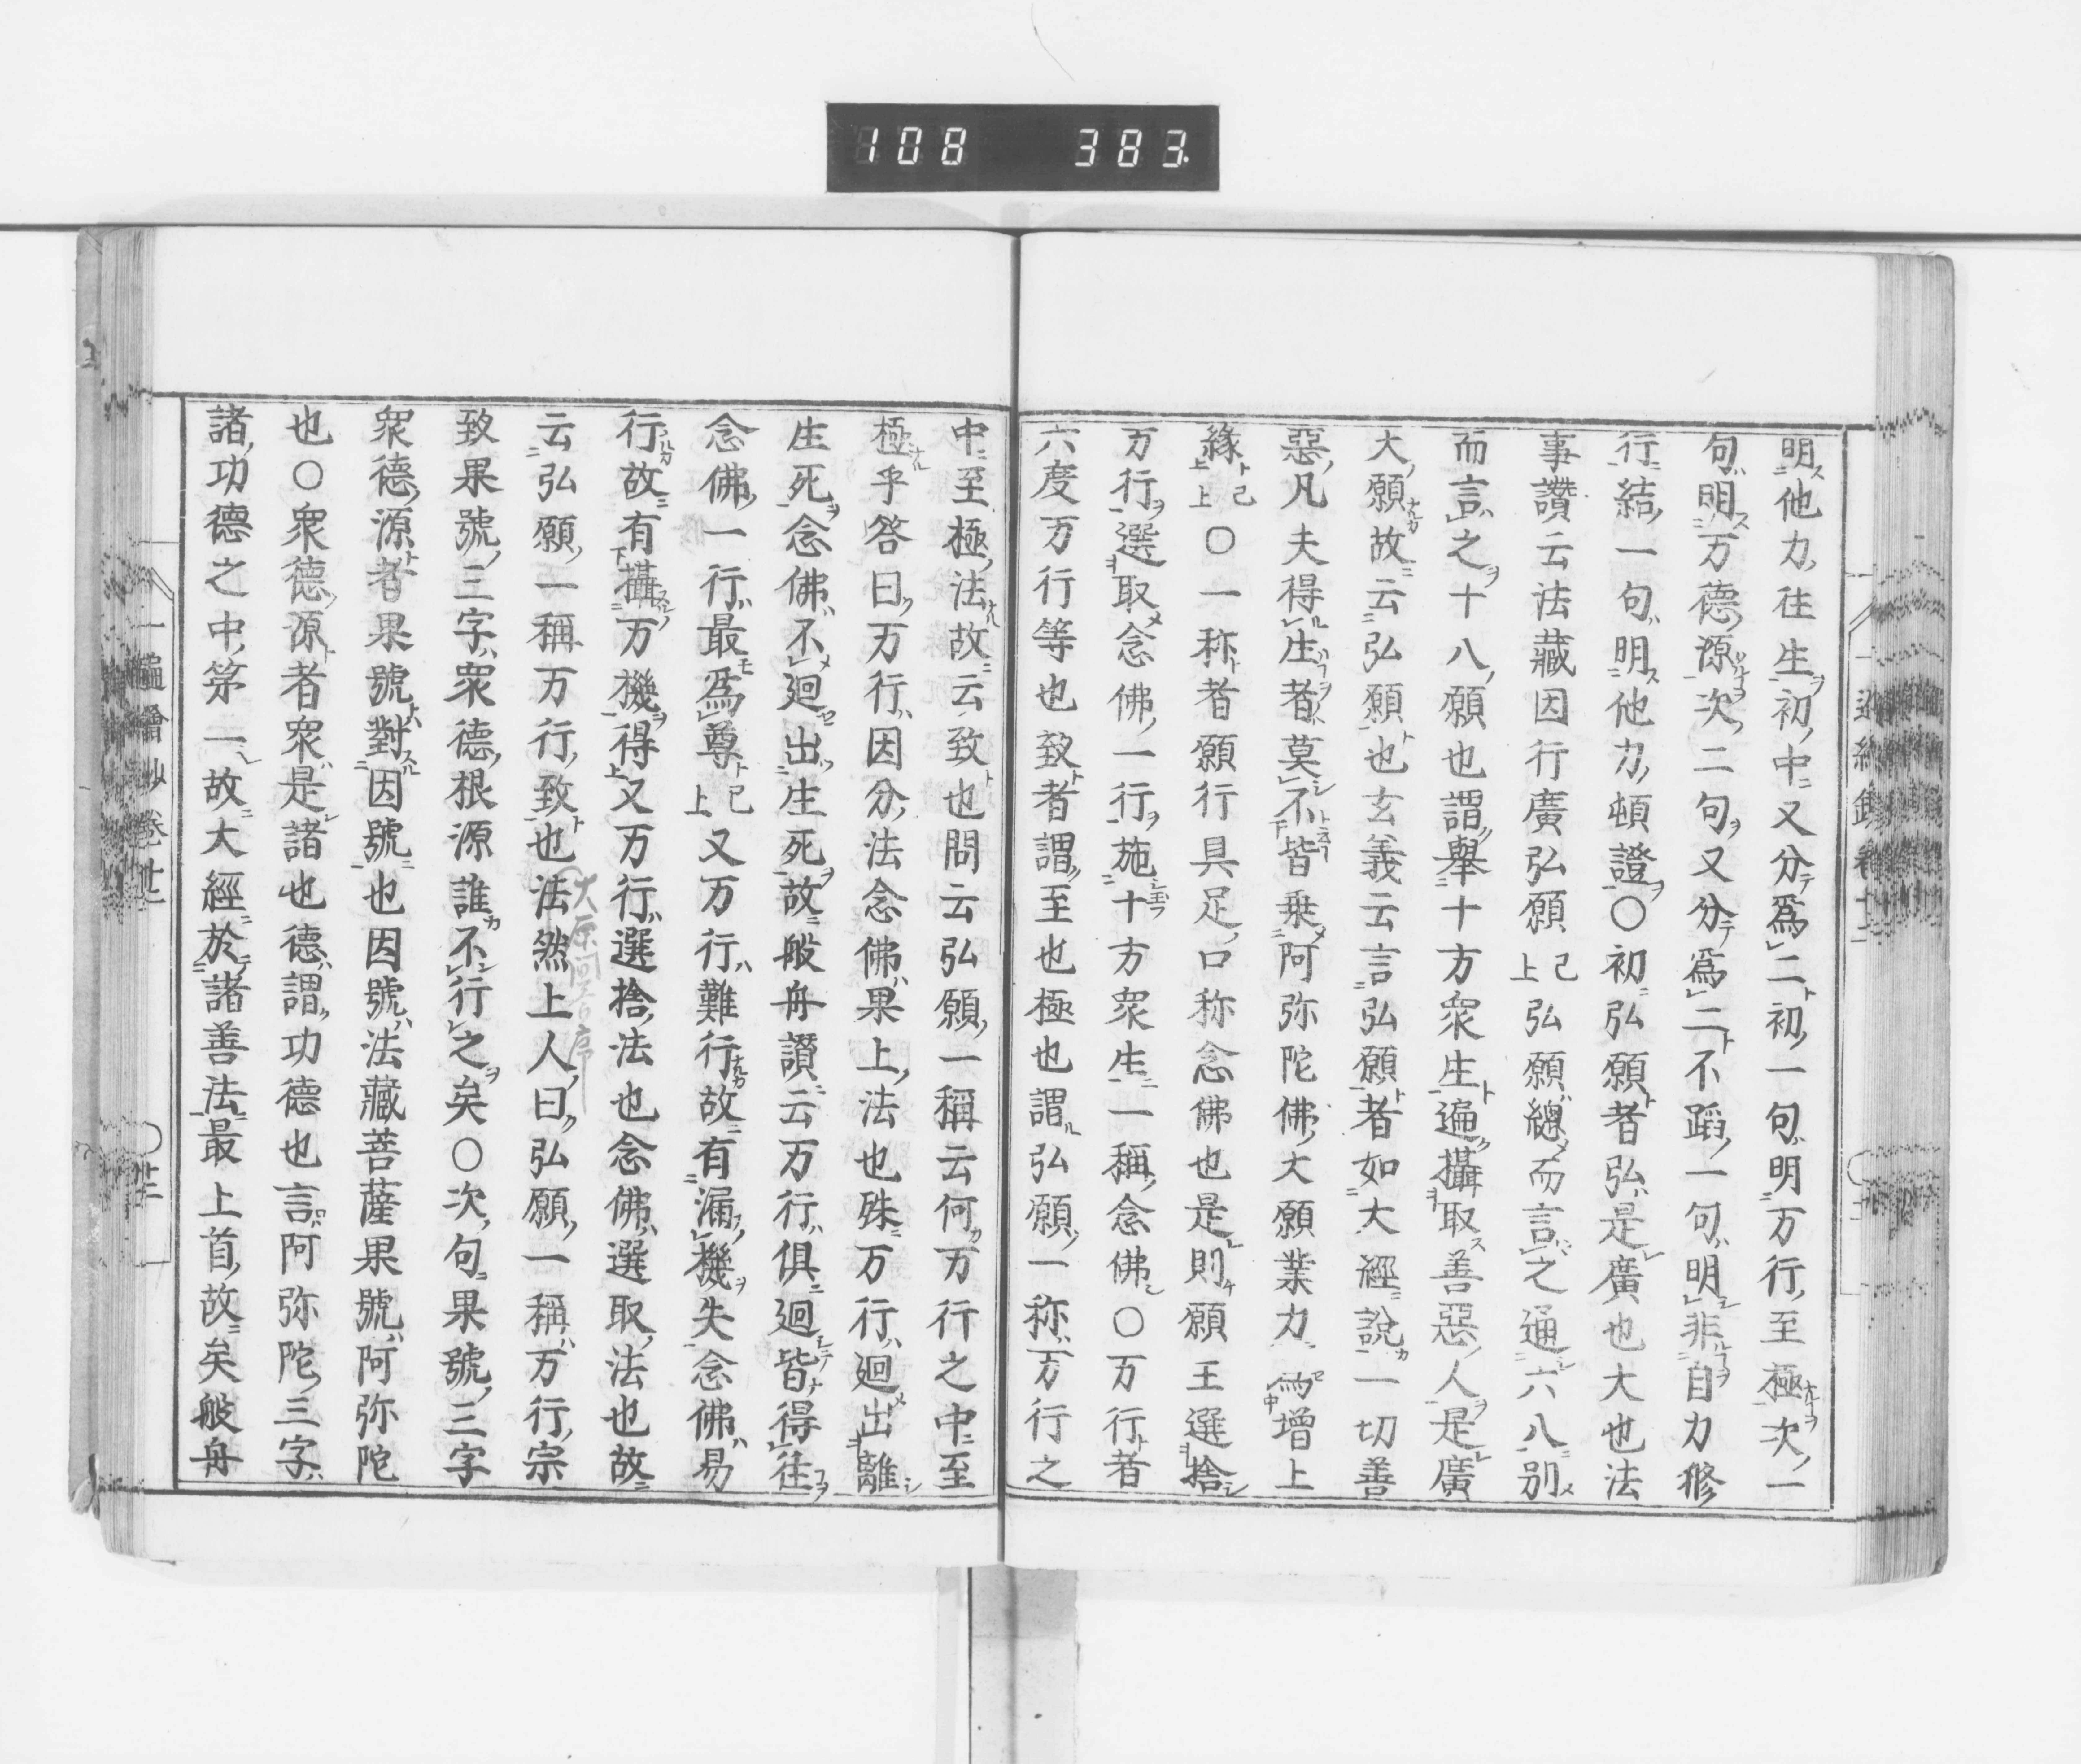 108 383
明他力往生初中又分爲二初一句明万行至極次一
句明万德源次二句又分爲二不蹈一句明非自力修
行結一句明他力頓證○初弘願者弘是廣也大也法
事讚云法藏因行廣弘願已上弘願總而言之通六八別
而言之十八願也謂舉十方衆生遍攝取善惡人是廣
大願故云弘願也玄義云言弘願者如大經說一切善
惡凡夫得生者莫不皆乗阿弥陀佛大願業力爲增上
緣已上○一称者願行具足口称念佛也是則願王選捨
万行選取念佛一行施十方衆生一稱念佛○万行者
六度万行等也致者謂至也極也謂弘願一称万行之
中至極法故云致也問云弘願一稱云何万行之中至
極乎答曰万行因分法念佛果上法也殊万行廻出離
生死念佛不廻出生死故般舟讃云万行俱廻皆得往
念佛一行最爲尊已上又万行難行故有漏機失念佛易
行故有攝万機得又万行選捨法也念佛選取法也故
云弘願一稱万行致也法然上人曰弘願一稱万行宗
大原問答序
致果號三字衆德根源誰不行之矣○次句果號三字
衆德源者果號對因號也因號法藏菩薩果號阿弥陀
也○衆德源者衆是諸也德謂功德也言阿弥陀三字
諸功德之中第一故大經於諸善法最上首故矣般舟